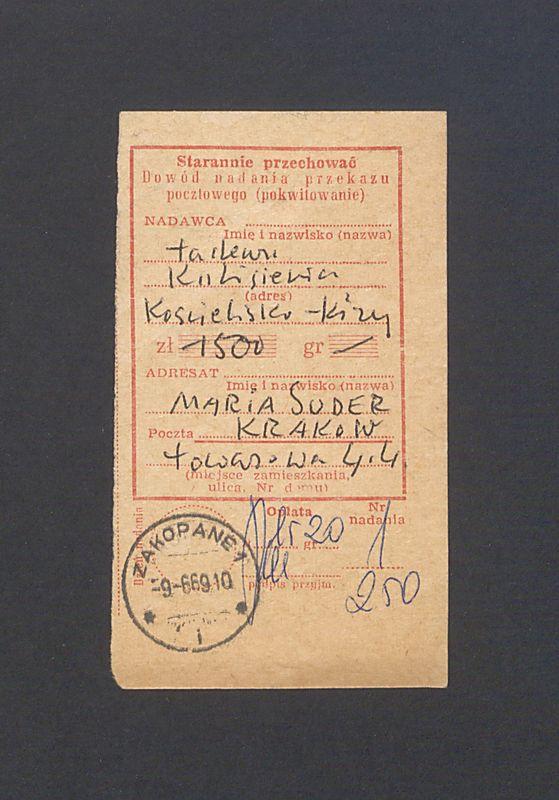 Starannie przechować
Dowód nadania przekazu
pocztowego (pokwitowanie)
NADAWCA
Imię i nazwisko (nazwa)
(adres)
Kościelisko -
zł 1500 gr —
ADRESAT
Imię i nazwisko (nazwa)
MARIA SUDER
Poczta KRAKÓW
Towarowa 4.4.
(miejsce zamieszkania,
ulica, Nr domu)
Opłata Nr
nadania
20
gr
podpis przyjm.
250
ZAKOPANE 1
-9-6.69.10
i